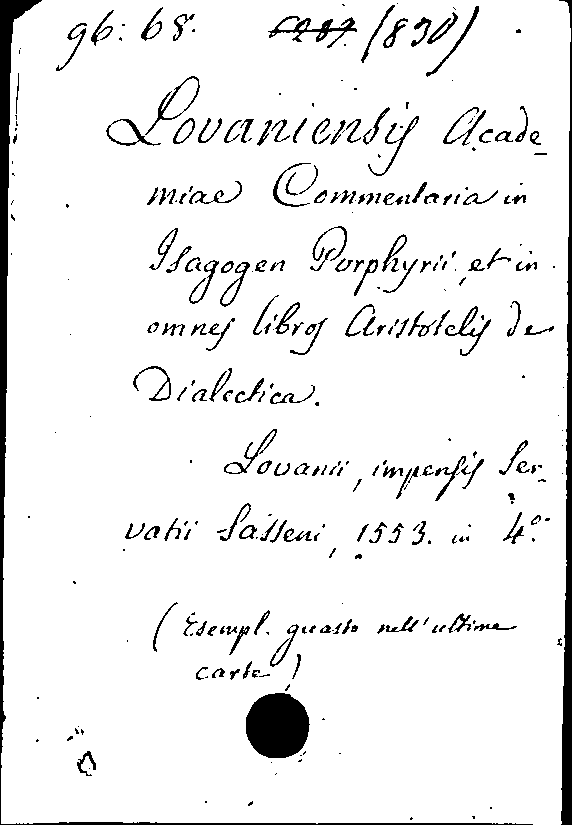 96: 68. 6287. (830)
Lovaniensis Acade-
miae Commentaria in
Isagogen Porphyrii, et in
omnes libros Aristotelis de
Dialectica.
Lovanii, impensis Ser-
vatii Sasseni, 1553. in 4º.
(Esempl. guasto nell'ultime
carte)